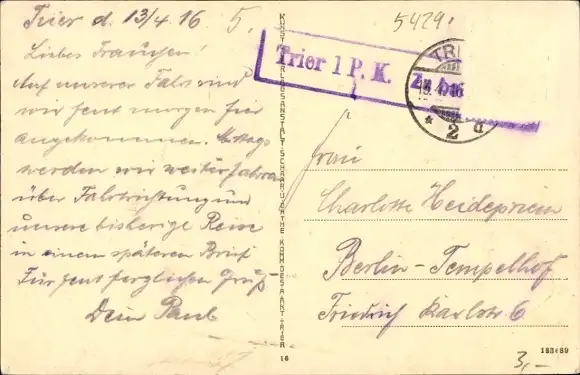 Trier d. 13/4. 16
5.
5429.
Liebes Frauchen!
Auf unserer Fahrt sind
wir heut morgen hier
angekommen. Mittags
werden wir weiterfahren
über Fahrtrichtung und
unsere bisherige Reise
in einem späteren Brief
Für heut herzlichen Gruß
Dein Paul
Trier 1 P. K.
Zu b
TRI
13.4.16
* 2 d
Frau
Charlotte Heideprien
Berlin-Tempelhof
Friedrich Karlstr 6
16
188489
3,-